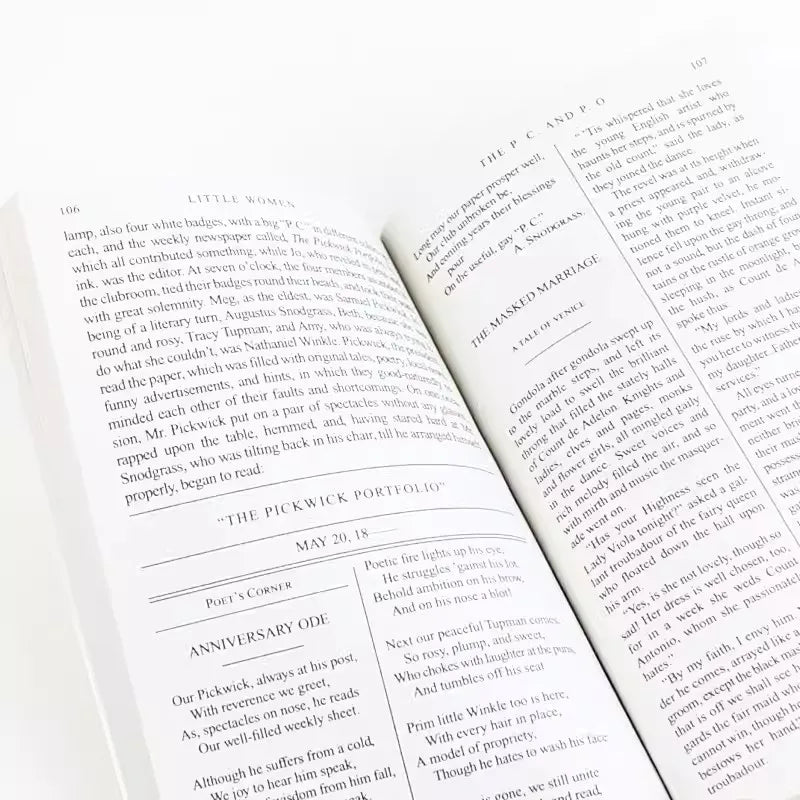 106
LITTLE WOMEN
lamp, also four white badges, with a big "P.C." in different colors on
each, and the weekly newspaper called, The Pickwick Portfolio, to
which all contributed something, while Jo, who reveled in
ink, was the editor. At seven o'clock, the four members
the clubroom, tied their badges round their heads, and took
with great solemnity. Meg, as the eldest, was Samuel
being of a literary turn, Augustus Snodgrass, Beth, because
round and rosy, Tracy Tupman, and Amy, who was always
do what she couldn't, was Nathaniel Winkle. Pickwick, the
read the paper, which was filled with original tales, poetry, local
funny advertisements, and hints, in which they good-naturedly
minded each other of their faults and shortcomings. On one
sion, Mr. Pickwick put on a pair of spectacles without any
rapped upon the table, hemmed, and, having stared hard at
Snodgrass, who was tilting back in his chair, till he arranged himself
properly, began to read:
"THE PICKWICK PORTFOLIO"
MAY 20, 18
POET'S CORNER
ANNIVERSARY ODE
Our Pickwick, always at his post,
With reverence we greet,
As, spectacles on nose, he reads
Our well-filled weekly sheet.
Although he suffers from a cold,
We joy to hear him speak,
of wisdom from him fall,
Poetic fire lights up his eye,
He struggles 'gainst his lot.
Behold ambition on his brow,
And on his nose a blot!
Next our peaceful Tupman comes,
So rosy, plump, and sweet,
Who chokes with laughter at the puns,
And tumbles off his seat
Prim little Winkle too is here,
With every hair in place,
A model of propriety,
Though he hates to wash his face
is gone, we still unite
THE P. C. AND P. O
107
Long may our paper prosper well,
Our club unbroken be,
And coming years their blessings
pour
On the useful, gay "P.C."
A. SNODGRASS.
THE MASKED MARRIAGE
A TALE OF VENICE
Gondola after gondola swept up
to the marble steps, and left its
lovely load to swell the brilliant
throng that filled the stately halls
of Count de Adelon. Knights and
ladies, elves and pages, monks
and flower girls, all mingled gaily
in the dance. Sweet voices and
rich melody filled the air, and so
with mirth and music the masquer-
ade went on.
"Has your Highness seen the
Lady Viola tonight?" asked a gal-
lant troubadour of the fairy queen
who floated down the hall upon
his arm.
"Yes, is she not lovely, though so
sad! Her dress is well chosen, too,
for in a week she weds Count
Antonio, whom she passionately
hates."
"By my faith, I envy him.
der he comes, arrayed like a
groom, except the black mask
that is off we shall see
gards the fair maid who
cannot win, though
bestows her hand,
troubadour.
"'Tis whispered that she loves
the young English artist who
haunts her steps, and is spurned by
the old count," said the lady, as
they joined the dance.
The revel was at its height when
a priest appeared, and, withdraw-
ing the young pair to an alcove
hung with purple velvet, he mo-
tioned them to kneel. Instant si-
lence fell upon the gay throng, and
not a sound, but the dash of
tains or the rustle of orange groves
sleeping in the moonlight,
the hush, as Count de
spoke thus:
"My lords and ladies
the ruse by which I
you here to witness the
my daughter. Father
services."
All eyes turned
party, and a
ment went
neither
their
possess
strange
was